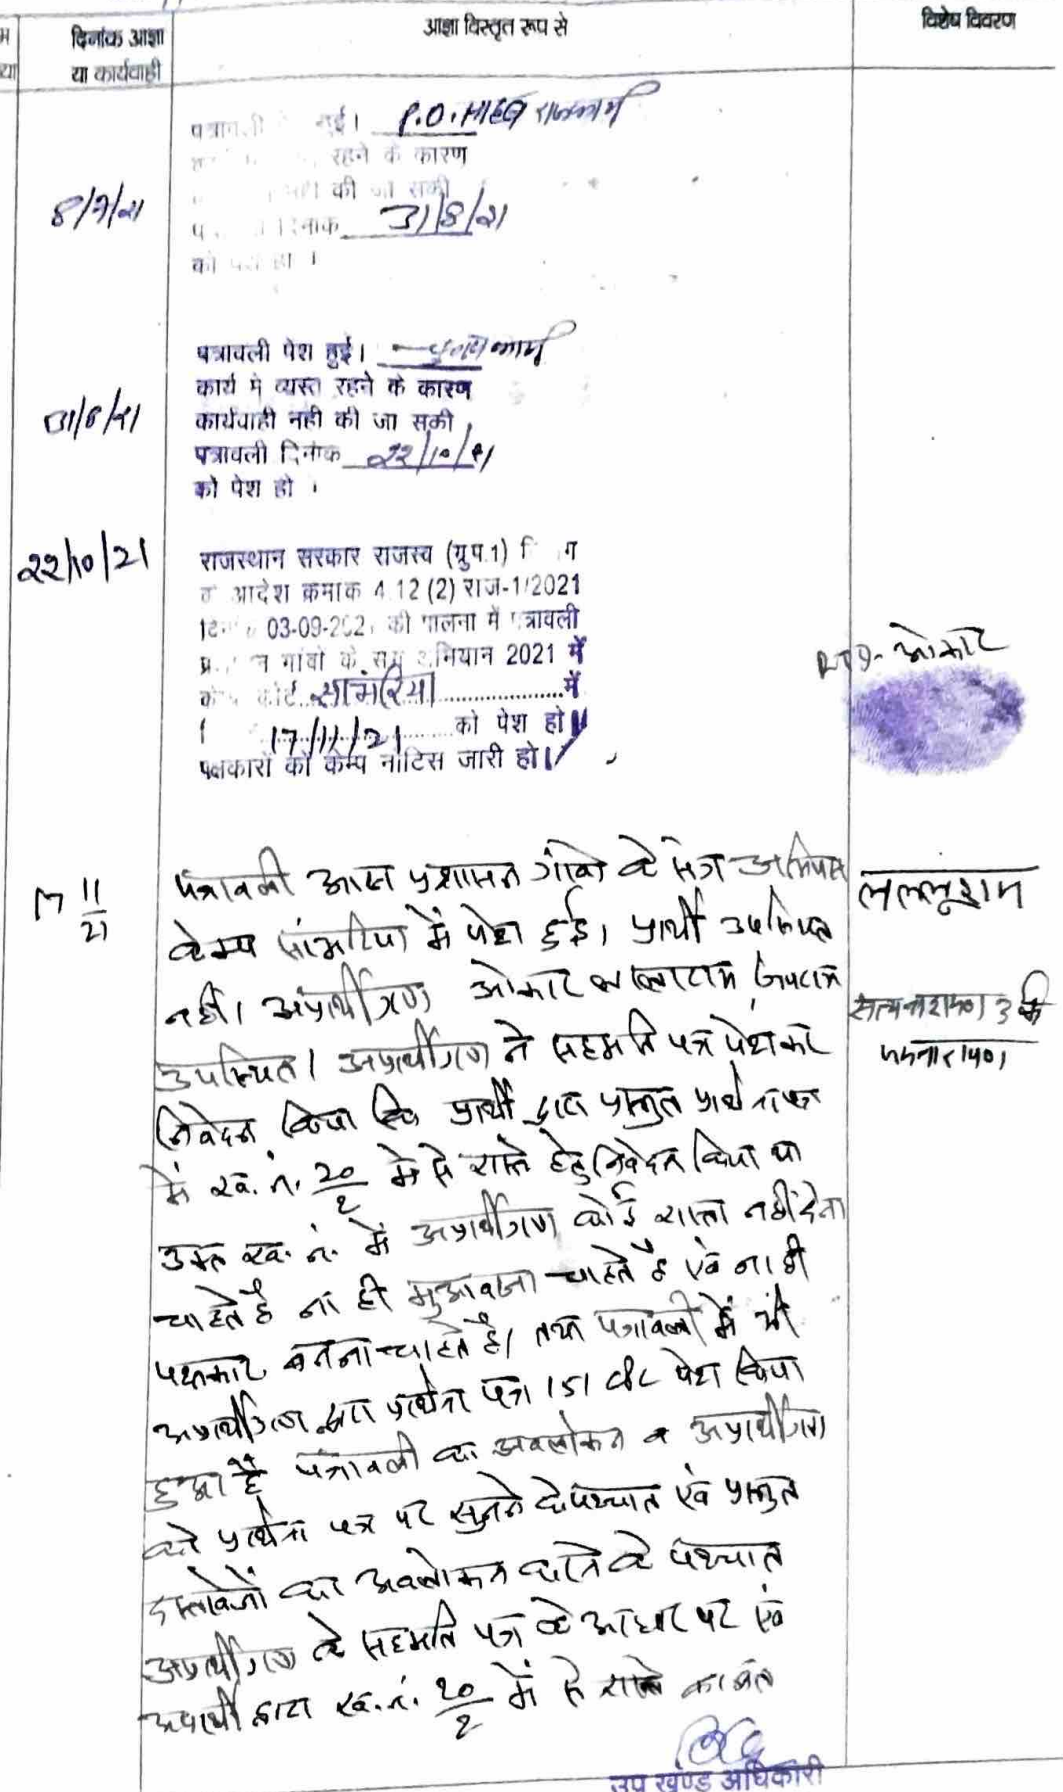 दिनांक आज्ञा
या कार्यवाही
आज्ञा विस्तृत रूप से
विशेष विवरण
8/7/21
P.O. साहब राजकार्य
रहने के कारण
की जा सकी
31/8/21
को पेश हो ।
31/8/21
पत्रावली पेश हुई।
कार्य मे व्यस्त रहने के कारण
कार्यवाही नही की जा सकी
पत्रावली दिनांक 22/10/21
को पेश हो ।
22/10/21
राजस्थान सरकार राजस्व (ग्रुप.1)
आदेश क्रमाक 4.12 (2) राज-1/2021
03-09-2021 की पालना में पत्रावली
गांवो के संग अभियान 2021 में
कोर्ट सांमरिया में
17/11/21 को पेश हो
पक्षकारों को केम्प नोटिस जारी हो।
RTI- ओकार
17 11/21
पत्रावली आज प्रशासन गांवो के संग अभियान
केम्प सांमरिया में पेश हुई। प्रार्थी उपस्थित
नही। अप्रार्थीगण ओकार
उपस्थित। अप्रार्थीगण ने सहमति पत्र पेश कर
निवेदन किया कि प्रार्थी द्वारा प्रस्तुत प्रार्थना पत्र
में ख. नं. 20/2 मे से रास्ते हेतु निवेदन किया था
उक्त ख. नं. में अप्रार्थीगण कोई रास्ता नही देना
चाहते है ना ही मुआवजा चाहते है एवं ना ही
पक्षकार बनना चाहते है। तथा पत्रावली में भी
अप्रार्थीगण द्वारा प्रार्थना पत्र 151 CPC पेश किया
हुआ है पत्रावली का अवलोकन व अप्रार्थीगण
को प्रार्थना पत्र पर सुनने के पश्चात एवं प्रस्तुत
दस्तावेजों का अवलोकन करने के पश्चात
अप्रार्थीगण के सहमति पत्र के आधार पर एवं
अप्रार्थी द्वारा ख. नं. 20/2 में से रास्ते
लल्लूराम
उप खण्ड अधिकारी